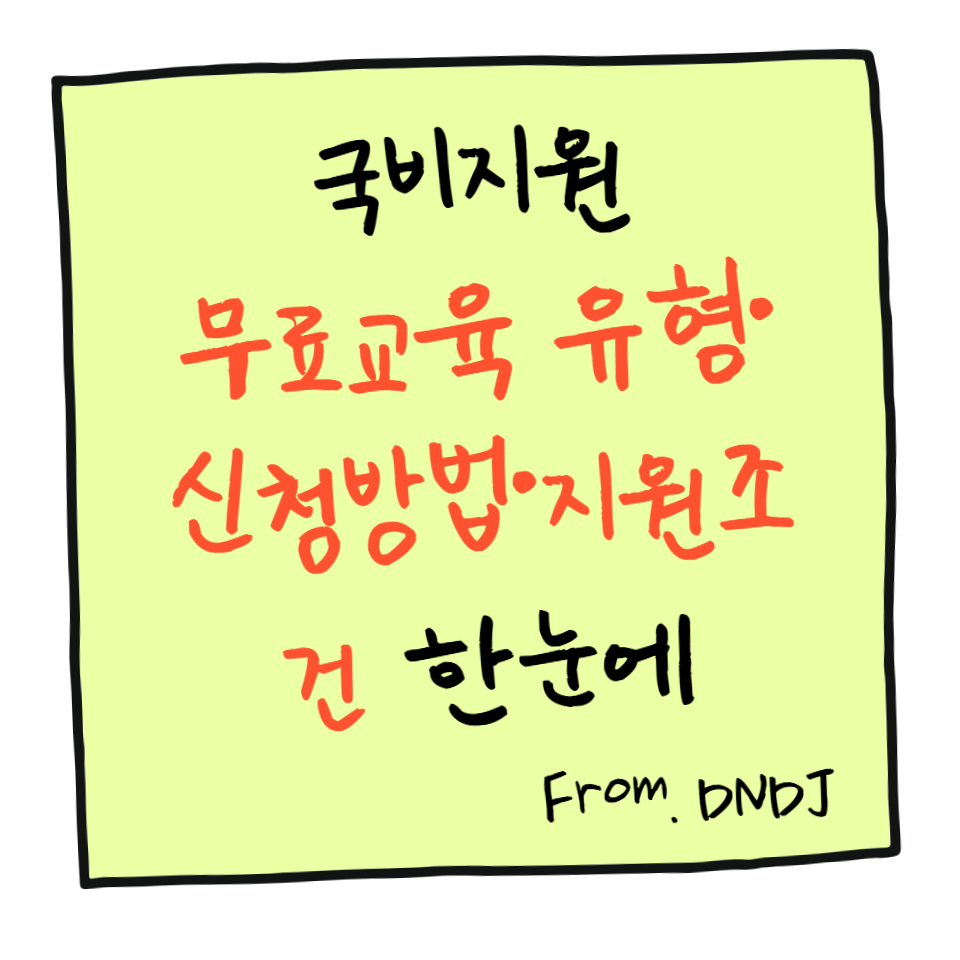 국비지원
무료교육 유형·
신청방법·지원조
건 한눈에
From. DNDJ